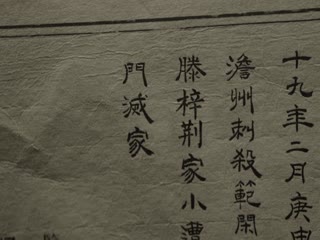 十九年二月庚申
澹州刺殺範閑
滕梓荆家小遭
門滅家